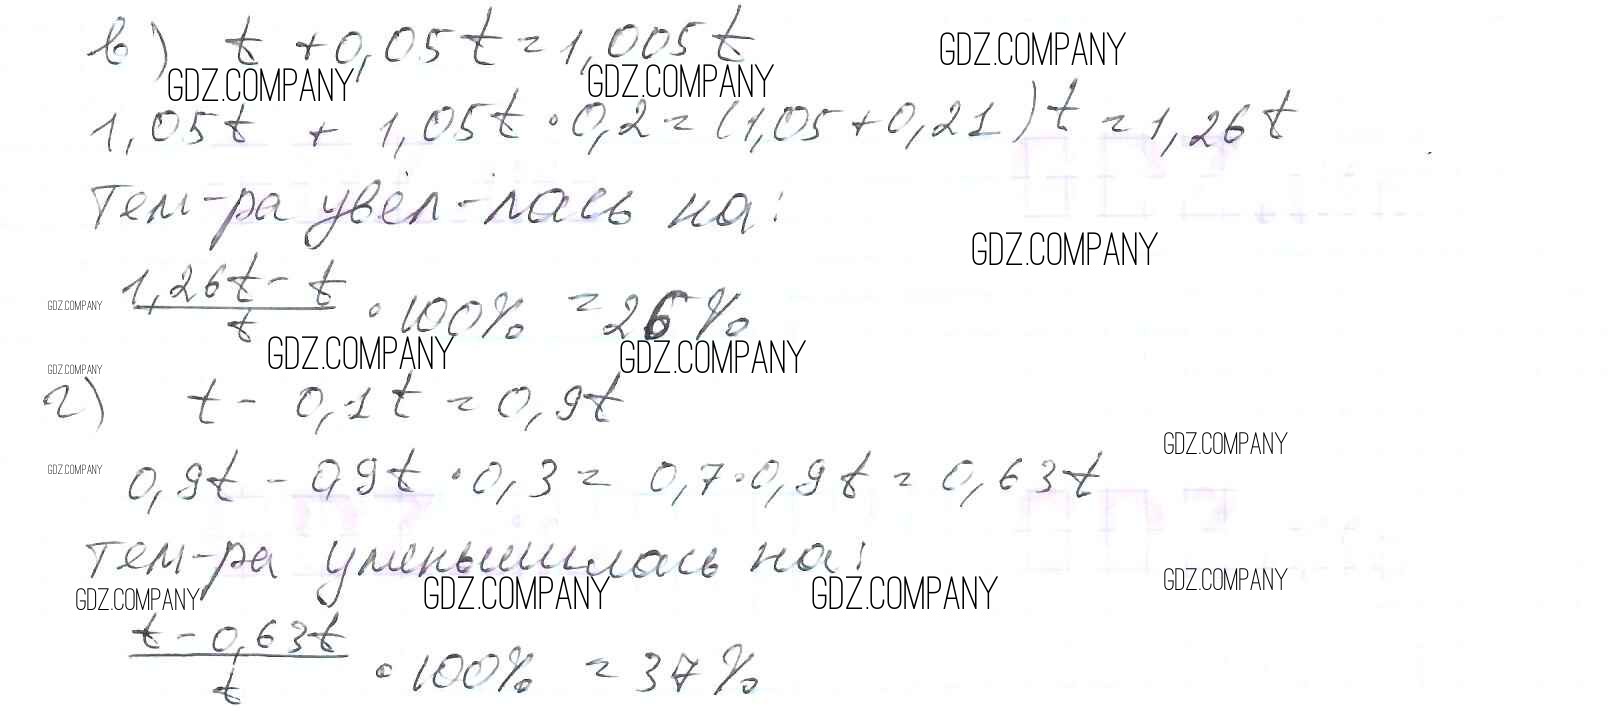 в) t + 0,05t = 1,005t
GDZ.COMPANY
GDZ.COMPANY GDZ.COMPANY
1,05t + 1,05t · 0,2 = (1,05 + 0,21)t = 1,26t
Тем-ра увел-лась на:
GDZ.COMPANY
GDZ.COMPANY
(1,26t - t)/t · 100% = 26%
GDZ.COMPANY GDZ.COMPANY
GDZ.COMPANY
г) t - 0,1t = 0,9t
GDZ.COMPANY
GDZ.COMPANY
0,9t - 0,9t · 0,3 = 0,7 · 0,9t = 0,63t
Тем-ра уменьшилась на:
GDZ.COMPANY
GDZ.COMPANY GDZ.COMPANY GDZ.COMPANY
(t - 0,63t)/t · 100% = 37%